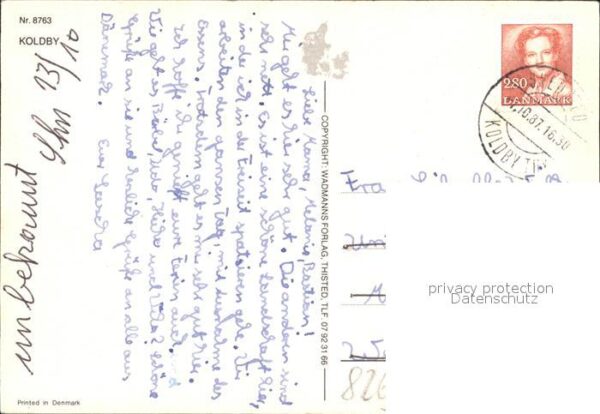 Nr. 8763
KOLDBY
unbekannt 13/10
Liebe Mama, Melanie, Bastian!
Mir geht es hier sehr gut. Die anderen sind
sehr nett. Es ist eine schöne Landschaft hier,
in der ich in der Freizeit spatzieren gehe. Wir
arbeiten den ganzen Tag, mit Ausnahme des
Essens. Trotzdem geht es mir sehr gut hier.
Ich hoffe ihr genießt eure Ferien auch und
Wie geht es und Schöne
Grüße an sie und herzliche Grüße an alle aus
Dänemark. Eure Sascha
COPYRIGHT: WADMANNS FORLAG, THISTED, TLF. 07 92 31 66
2.80
DANMARK
10.87.16.30
KOLDBY
privacy protection
Datenschutz
Printed in Denmark